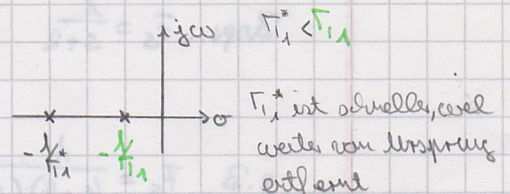 jω
T₁* < T₁
σ
-1/T₁* -1/T₁
T₁* ist schneller, weil
weiter vom Ursprung
entfernt